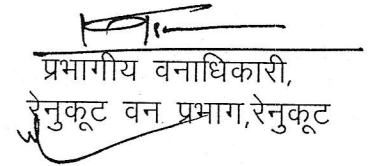 प्रभागीय वनाधिकारी,
रेनुकूट वन प्रभाग,रेनुकूट